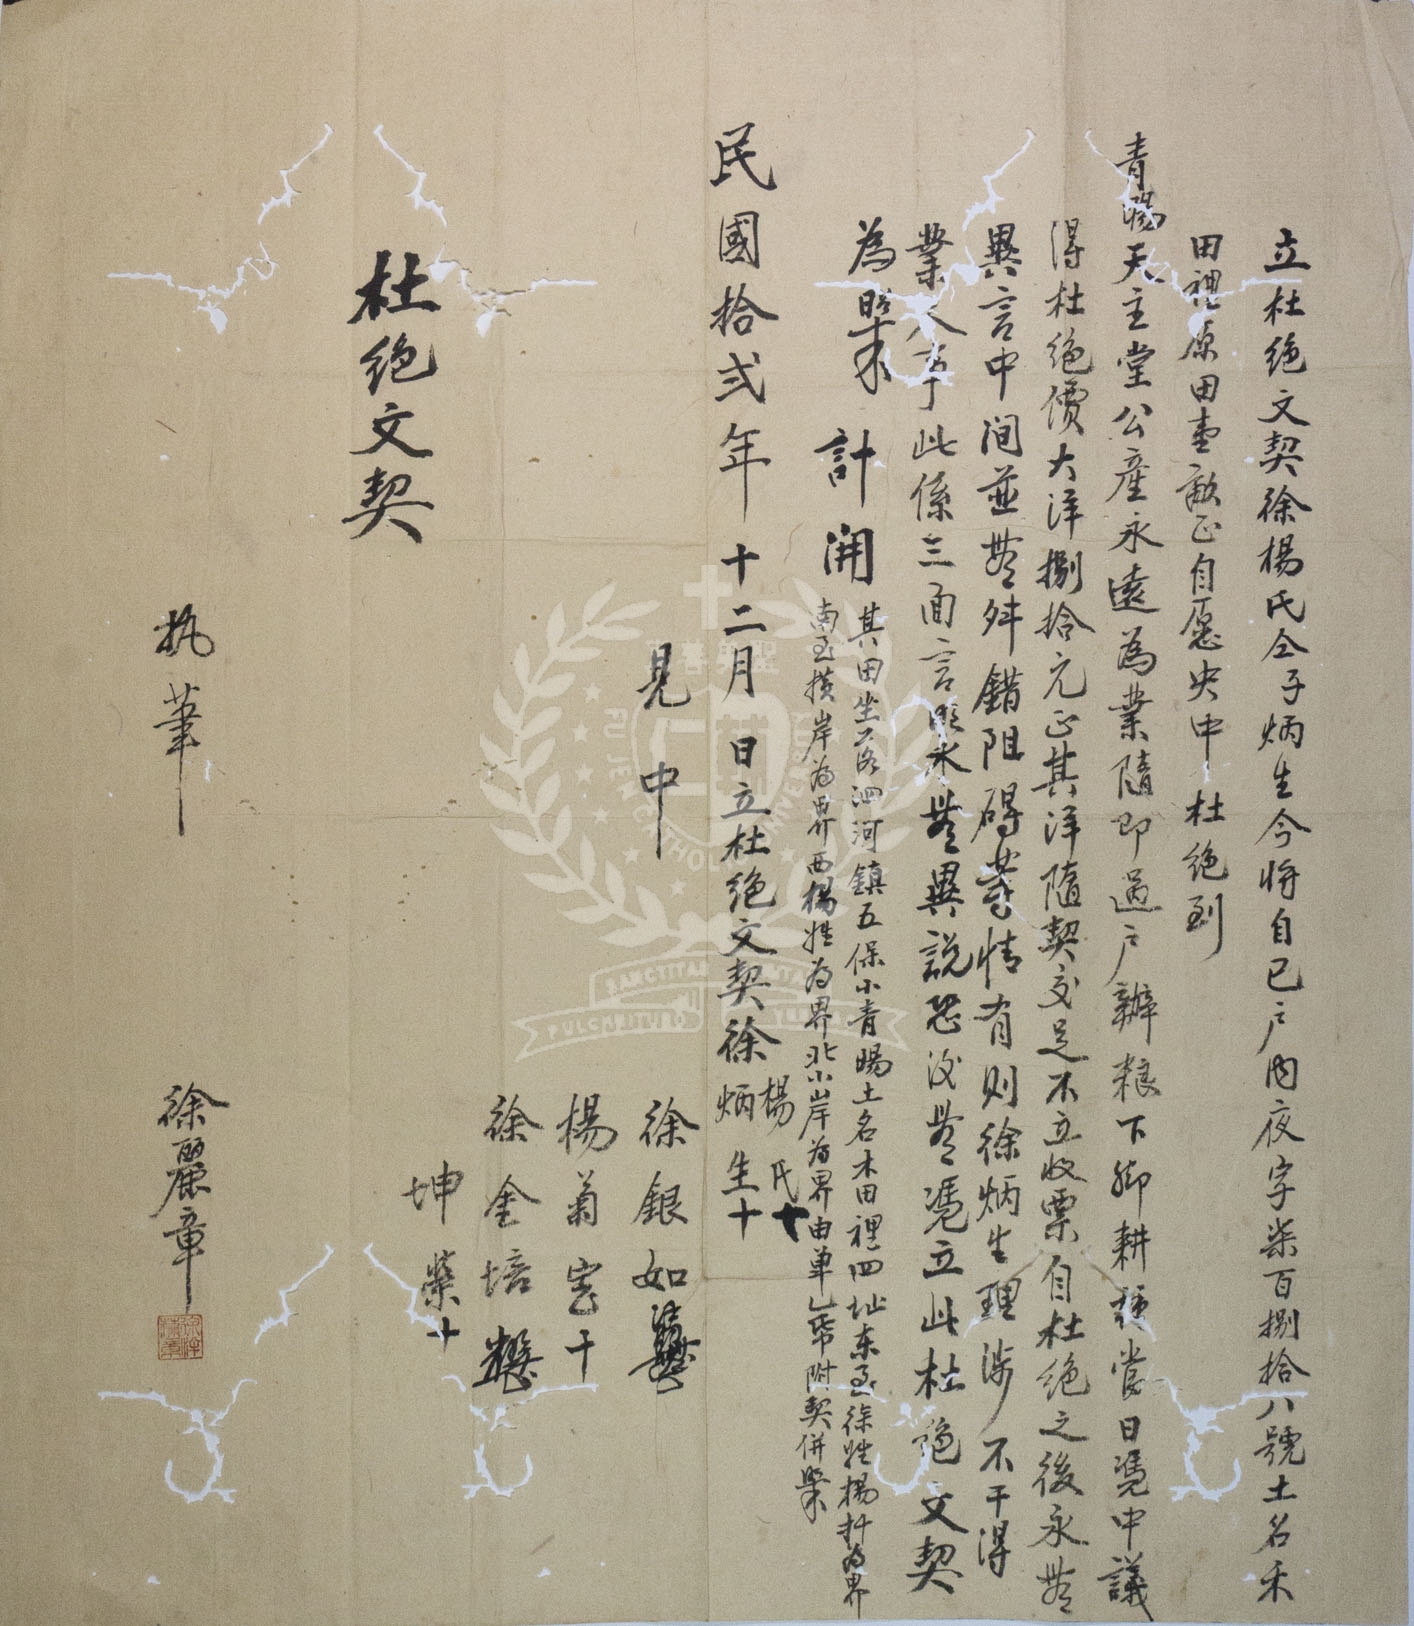 立杜绝文契徐楊氏仝子炳生今将自已户内夜字柒百捌拾八號土名禾
田裡原田壹畝正自愿央中杜绝到
青暘天主堂公產永遠為業隨即過户辦粮下脚耕種當日憑中議
得杜绝價大洋捌拾元正其洋隨契交足不立收票自杜绝之後永無
異言中间並無舛錯阻碍等情有则徐炳生理涉不干得
業人事此係三面言明永無異說恐後無憑立此杜絕文契
為照
計開
其田坐落泗河鎮五保小青暘土名木田裡四址东至徐姓楊 為界
南至横岸為界西楊姓為界北小岸為界由单乙帋附契併照
民國拾弍年十二月 日立杜绝文契徐楊氏十
炳生十
見中
徐銀如
楊菊 十
徐金培
坤榮十
杜绝文契
执筆 徐麗章